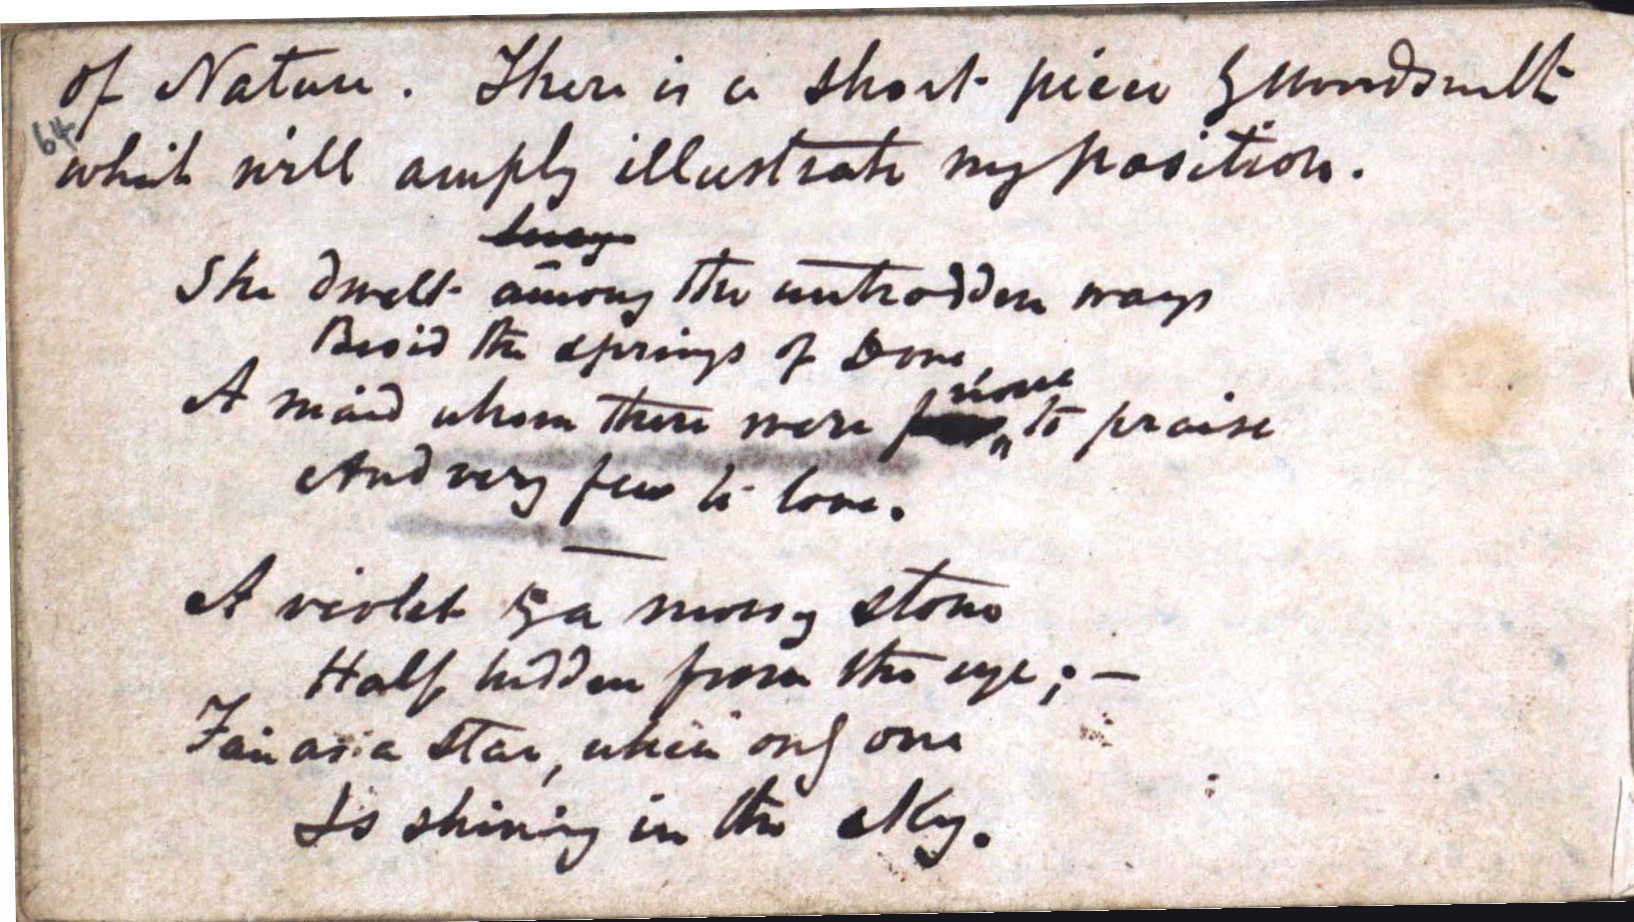 of Nature. There is a short piece by Wordsworth
64
which will amply illustrate my position.
She dwelt among the untrodden ways
Beside the springs of Dove
none
A maid whom there were few ^ to praise
And very few to love.
—
A violet by a mossy stone
Half hidden from the eye; —
Fair as a star, when only one
Is shining in the sky.